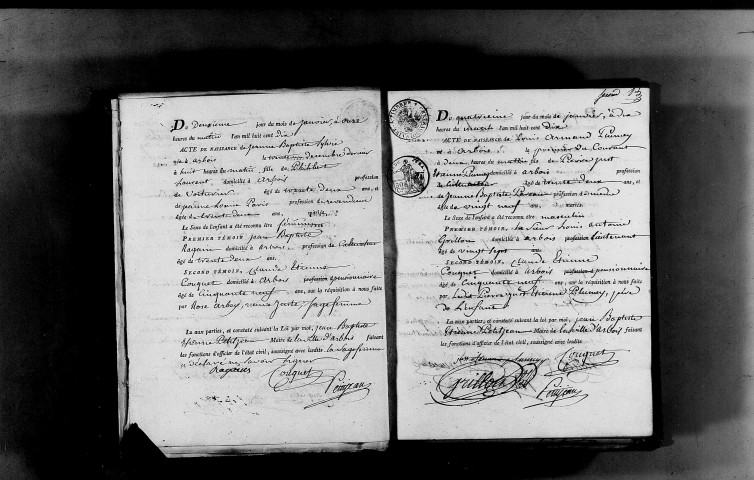 Du deuxième jour du mois de janvier, à onze
heures du matin l'an mil huit cent dix
ACTE DE NAISSANCE de Jeanne Baptiste Sylvie
née à arbois le trente un décembre dernier
à huit heures du matin, fille de Philibert
Laurent domicilié à Arbois profession
de Voiturier âgé de trente deux ans, et
de jeanne Louise Paris profession de revendeuse
âgée de trente deux ans
Le Sexe de l'enfant a été reconnu être féminin
PREMIER TÉMOIN, jean Baptiste
Ragain domicilié à arbois profession de Cordonnier
âgé de trente deux ans.
SECOND TÉMOIN, Claude Etienne
Couquet domicilié à Arbois profession pensionnaire
âgé de Cinquante neuf ans, sur la réquisition à nous faite
par Rose arboy, veuve sage femme
Lu aux parties, et constaté suivant la Loi par moi, jean Baptiste
Etienne Petitjean Maire de la ville d'Arbois faisant
les fonctions d'officier de l'état civil, soussigné avec lesdits la sage femme
a déclaré ne savoir signer
Couquet
Petitjean
Second
Du quatrième jour du mois de janvier, à dix
heures du matin l'an mil huit cent dix
ACTE DE NAISSANCE de Louis Armand
né à Arbois le premier Du Courant
à deux heures du matin fils de Pierre
Etienne domicilié à arbois profession
âgé de trente deux ans, et
de Jeanne Baptiste profession de même
âgée de vingt neuf ans, mariés.
Le Sexe de l'enfant a été reconnu être masculin
PREMIER TÉMOIN, Le Sieur Louis antoine
Guillon domicilié à arbois profession Lieutenant
âgé de vingt sept ans
SECOND TÉMOIN, Claude Etienne
Couquet domicilié à Arbois profession pensionnaire
âgé de Cinquante neuf ans, sur la réquisition à nous faite
par Ledit Pierre Etienne père
de L'enfant
Lu aux parties, et constaté suivant la Loi par moi, jean Baptiste
Etienne Petitjean Maire de la ville d'arbois faisant
les fonctions d'officier de l'état civil, soussigné avec lesdits
Couquet
Guillon
Petitjean